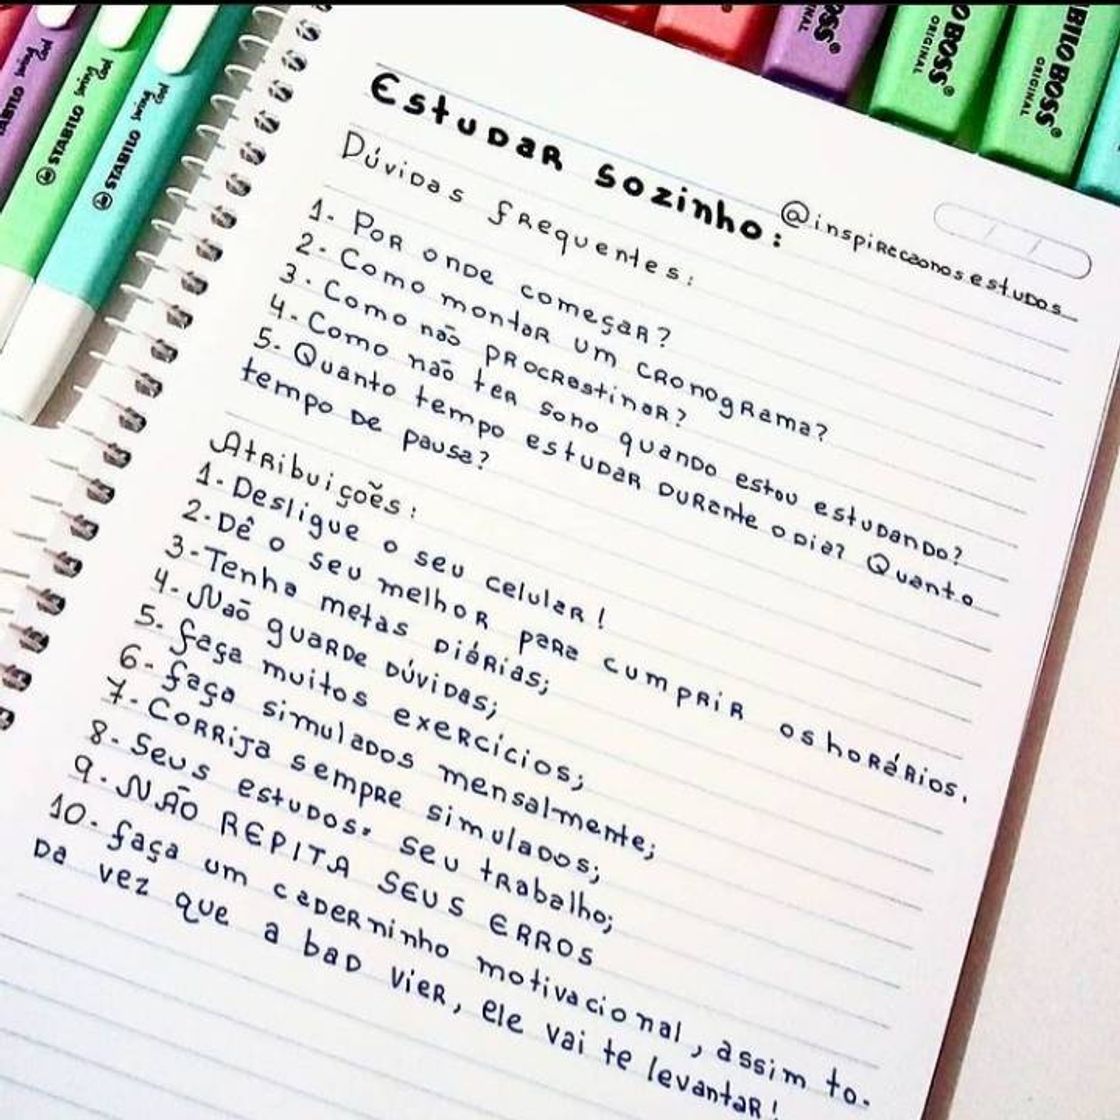 STABILO swing cool
STABILO swing cool
STABILO swing cool
BOSS®
ORIGINAL
O BOSS®
ORIGINAL
BILO BOSS®
ORIGINAL
Estudar sozinho:
@inspirecaonosestudos
Dúvidas frequentes:
1- Por onde começar?
2- Como montar um cronograma?
3- Como não procrastinar?
4- Como não ter sono quando estou estudando?
5- Quanto tempo estudar durante o dia? Quanto
tempo de pausa?
Atribuições:
1- Desligue o seu celular!
2- Dê o seu melhor para cumprir os horários.
3- Tenha metas diárias;
4- Não guarde dúvidas;
5- faça muitos exercícios;
6- faça simulados mensalmente;
7- Corrija sempre simulados;
8- Seus estudos, seu trabalho;
9- NÃO REPITA SEUS ERROS
10- faça um caderninho motivacional, assim to-
da vez que a bad vier, ele vai te levantar!